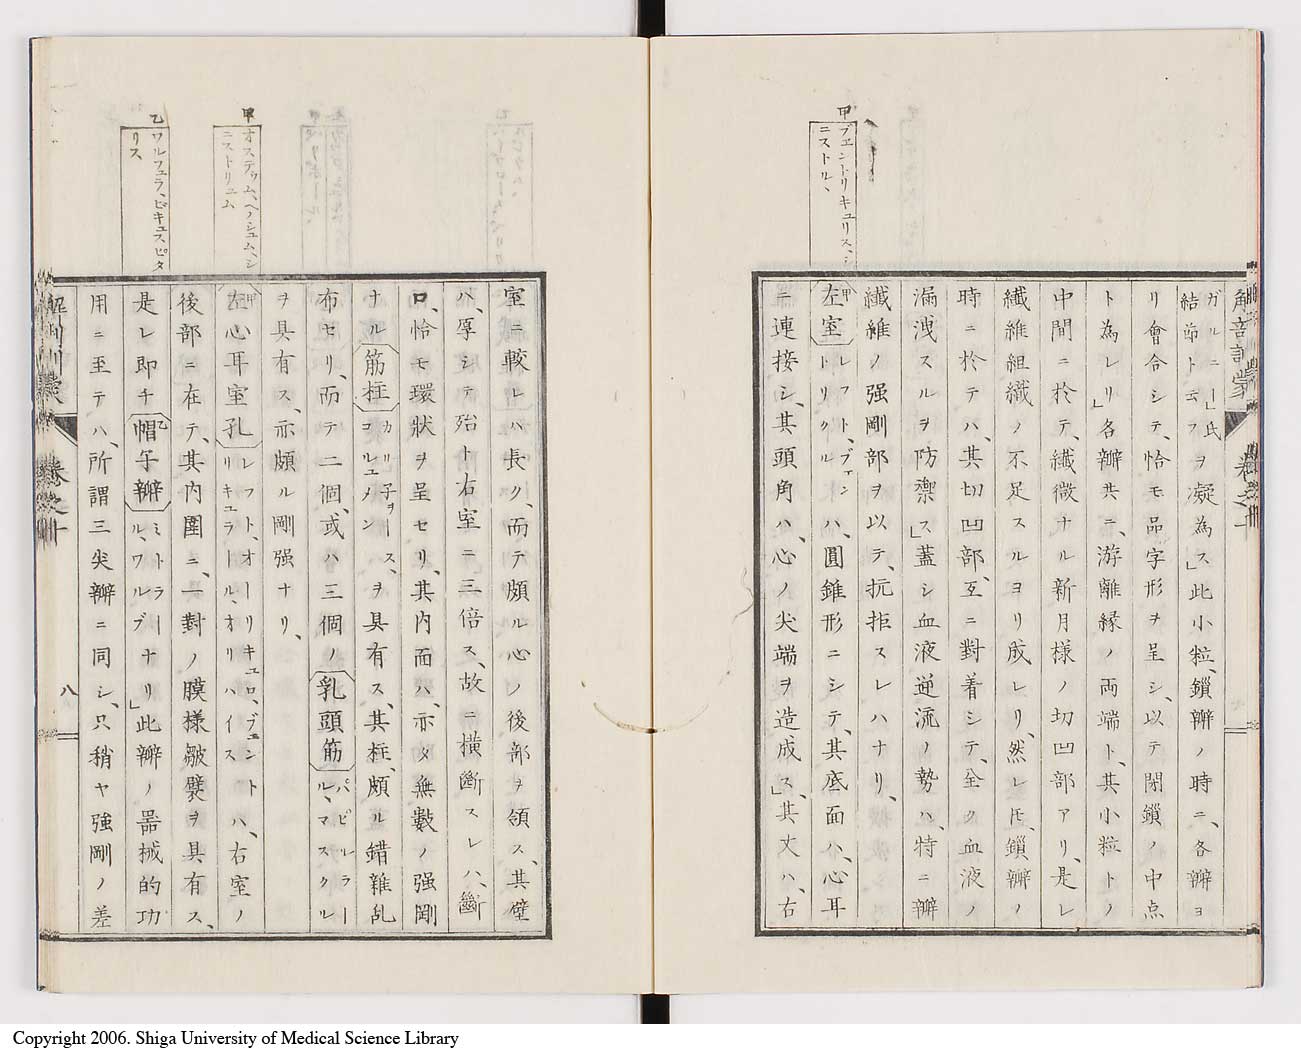 甲
ブエントリキュリス、シ
ニストル、
ガルニー」氏
結節ト云フヲ凝為ス」此小粒、鎖瓣ノ時ニ、各瓣ヨ
リ會合シテ、恰モ品字形ヲ呈シ、以テ閉鎖ノ中点
ト為レリ」各瓣共ニ、游離縁ノ両端ト、其小粒トノ
中間ニ於テ、纎微ナル新月様ノ切凹部アリ、是レ
纎維組織ノ不足スルヨリ成レリ、然レ𪜈、鎖瓣ノ
時ニ於テハ、其切凹部、互ニ對着シテ、全ク血液ノ
漏洩スルヲ防禦ス」蓋シ血液逆流ノ勢ハ、特ニ瓣
纎維ノ强剛部ヲ以テ、抗拒スレハナリ、
甲左室レフト、ブェントリクルハ、圓錐形ニシテ、其底面ハ、心耳
ニ連接シ、其頭角ハ、心ノ尖端ヲ造成ス」、其丈ハ、右
解剖訓蒙 卷之十
室ニ較レハ長ク、而テ頗ル心ノ後部ヲ領ス、其壁
ハ、厚シテ殆ト右室ニ三倍ス、故ニ横斷スレハ、斷
口、恰モ環狀ヲ呈セリ、其内面ハ、亦タ無數ノ强剛
ナル筋柱カリ子ヲース、コルュメンヲ具有ス、其柱、頗ル錯雜乱
布セリ、而テ二個、或ハ三個ノ乳頭筋パピルラール、マスクル
ヲ具有ス、亦頗ル剛强ナリ、
甲左心耳室孔レフト、オーリキュロ、ブェントリキュラール、オリハイスハ、右室ノ
後部ニ在テ、其内圍ニ、一對ノ膜様皺襞ヲ具有ス、
是レ即チ乙帽子瓣ミトラール、ワルブナリ」此瓣ノ器械的功
用ニ至テハ、所謂三尖瓣ニ同シ、只稍ヤ强剛ノ差
甲
オステウム、ヘノシュム、シ
ニストリュム
乙
ワルフェラ、ビキュスピタ
リス
解剖訓蒙 卷之十 八